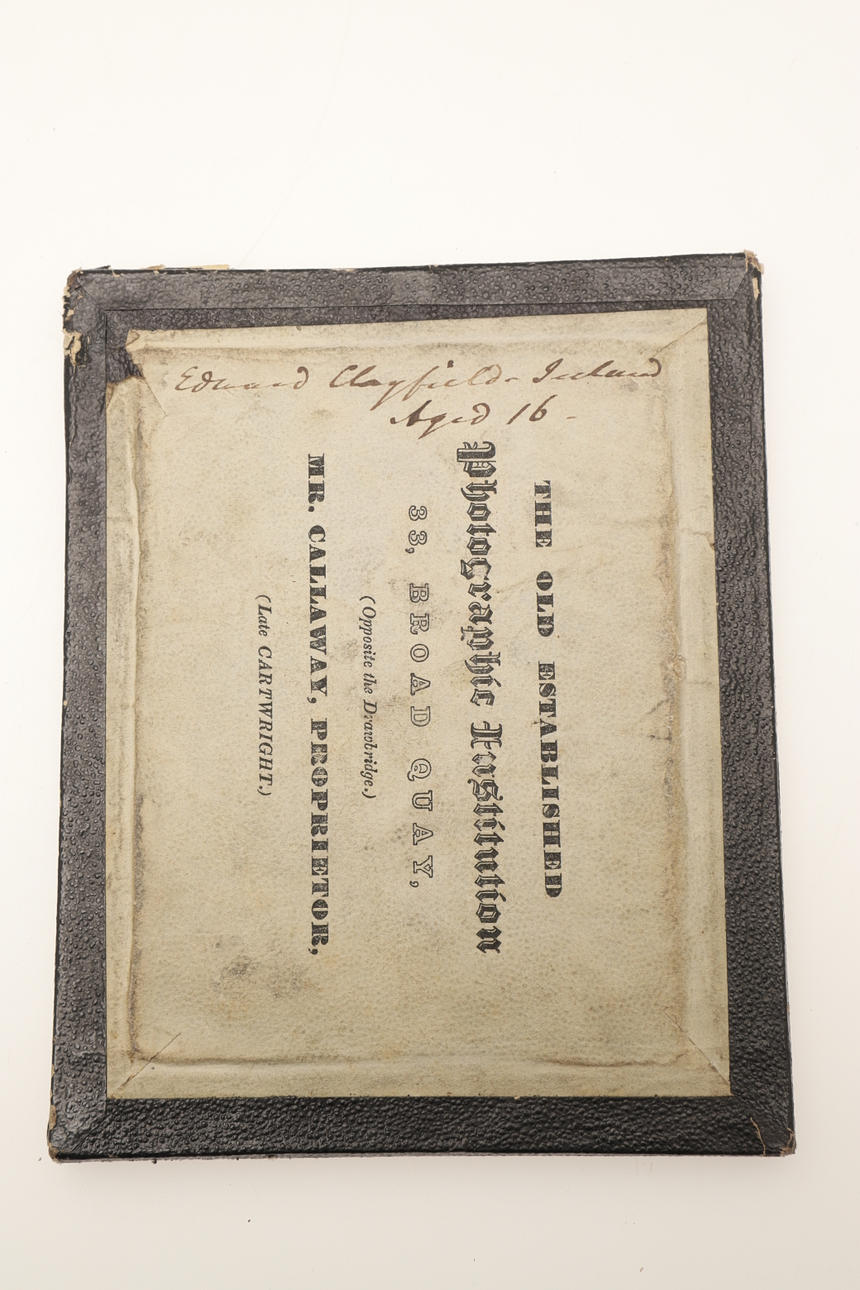 Edward Clayfield-Ireland
Aged 16 -
THE OLD ESTABLISHED
Photographic Institution
33, BROAD QUAY,
(Opposite the Drawbridge.)
MR. CALLAWAY, PROPRIETOR,
(Late CARTWRIGHT.)